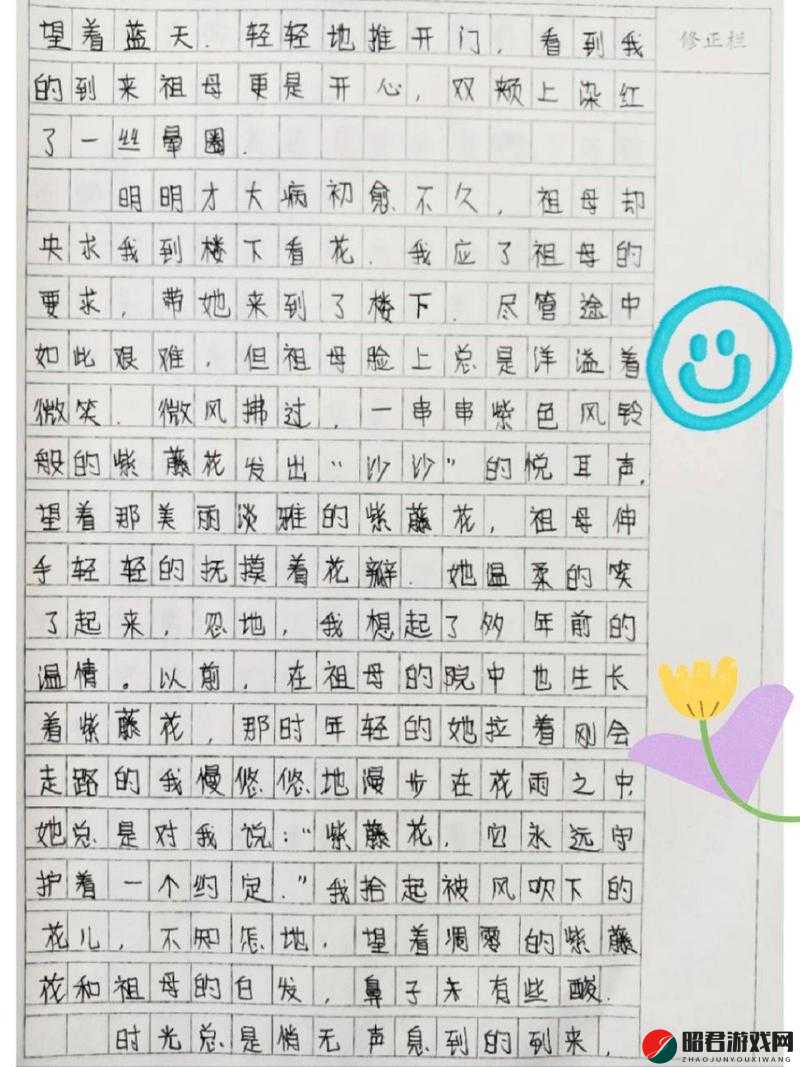 望着蓝天.轻轻地推开门,看到我
修正栏
的到来祖母更是开心,双颊上染红
了一丝晕圈.
明明才大病初愈不久,祖母却
央求我到楼下看花.我应了祖母的
要求,带她来到了楼下.尽管途中
如此艰难,但祖母脸上总是洋溢着
微笑.微风拂过,一串串紫色风铃
般的紫藤花发出“沙沙”的悦耳声.
望着那美丽淡雅的紫藤花,祖母伸
手轻轻的抚摸着花瓣.她温柔的笑
了起来,忽地,我想起了多年前的
温情。以前,在祖母的院中也生长
着紫藤花,那时年轻的她拉着刚会
走路的我慢悠悠地漫步在花雨之中
她总是对我说:“紫藤花,它永远守
护着一个约定.”我拾起被风吹下的
花儿,不知怎地,望着凋零的紫藤
花和祖母的白发,鼻子未有些酸.
时光总是悄无声息到的到来,
昭君游戏网
ZHAOJUNYOUXIWANG